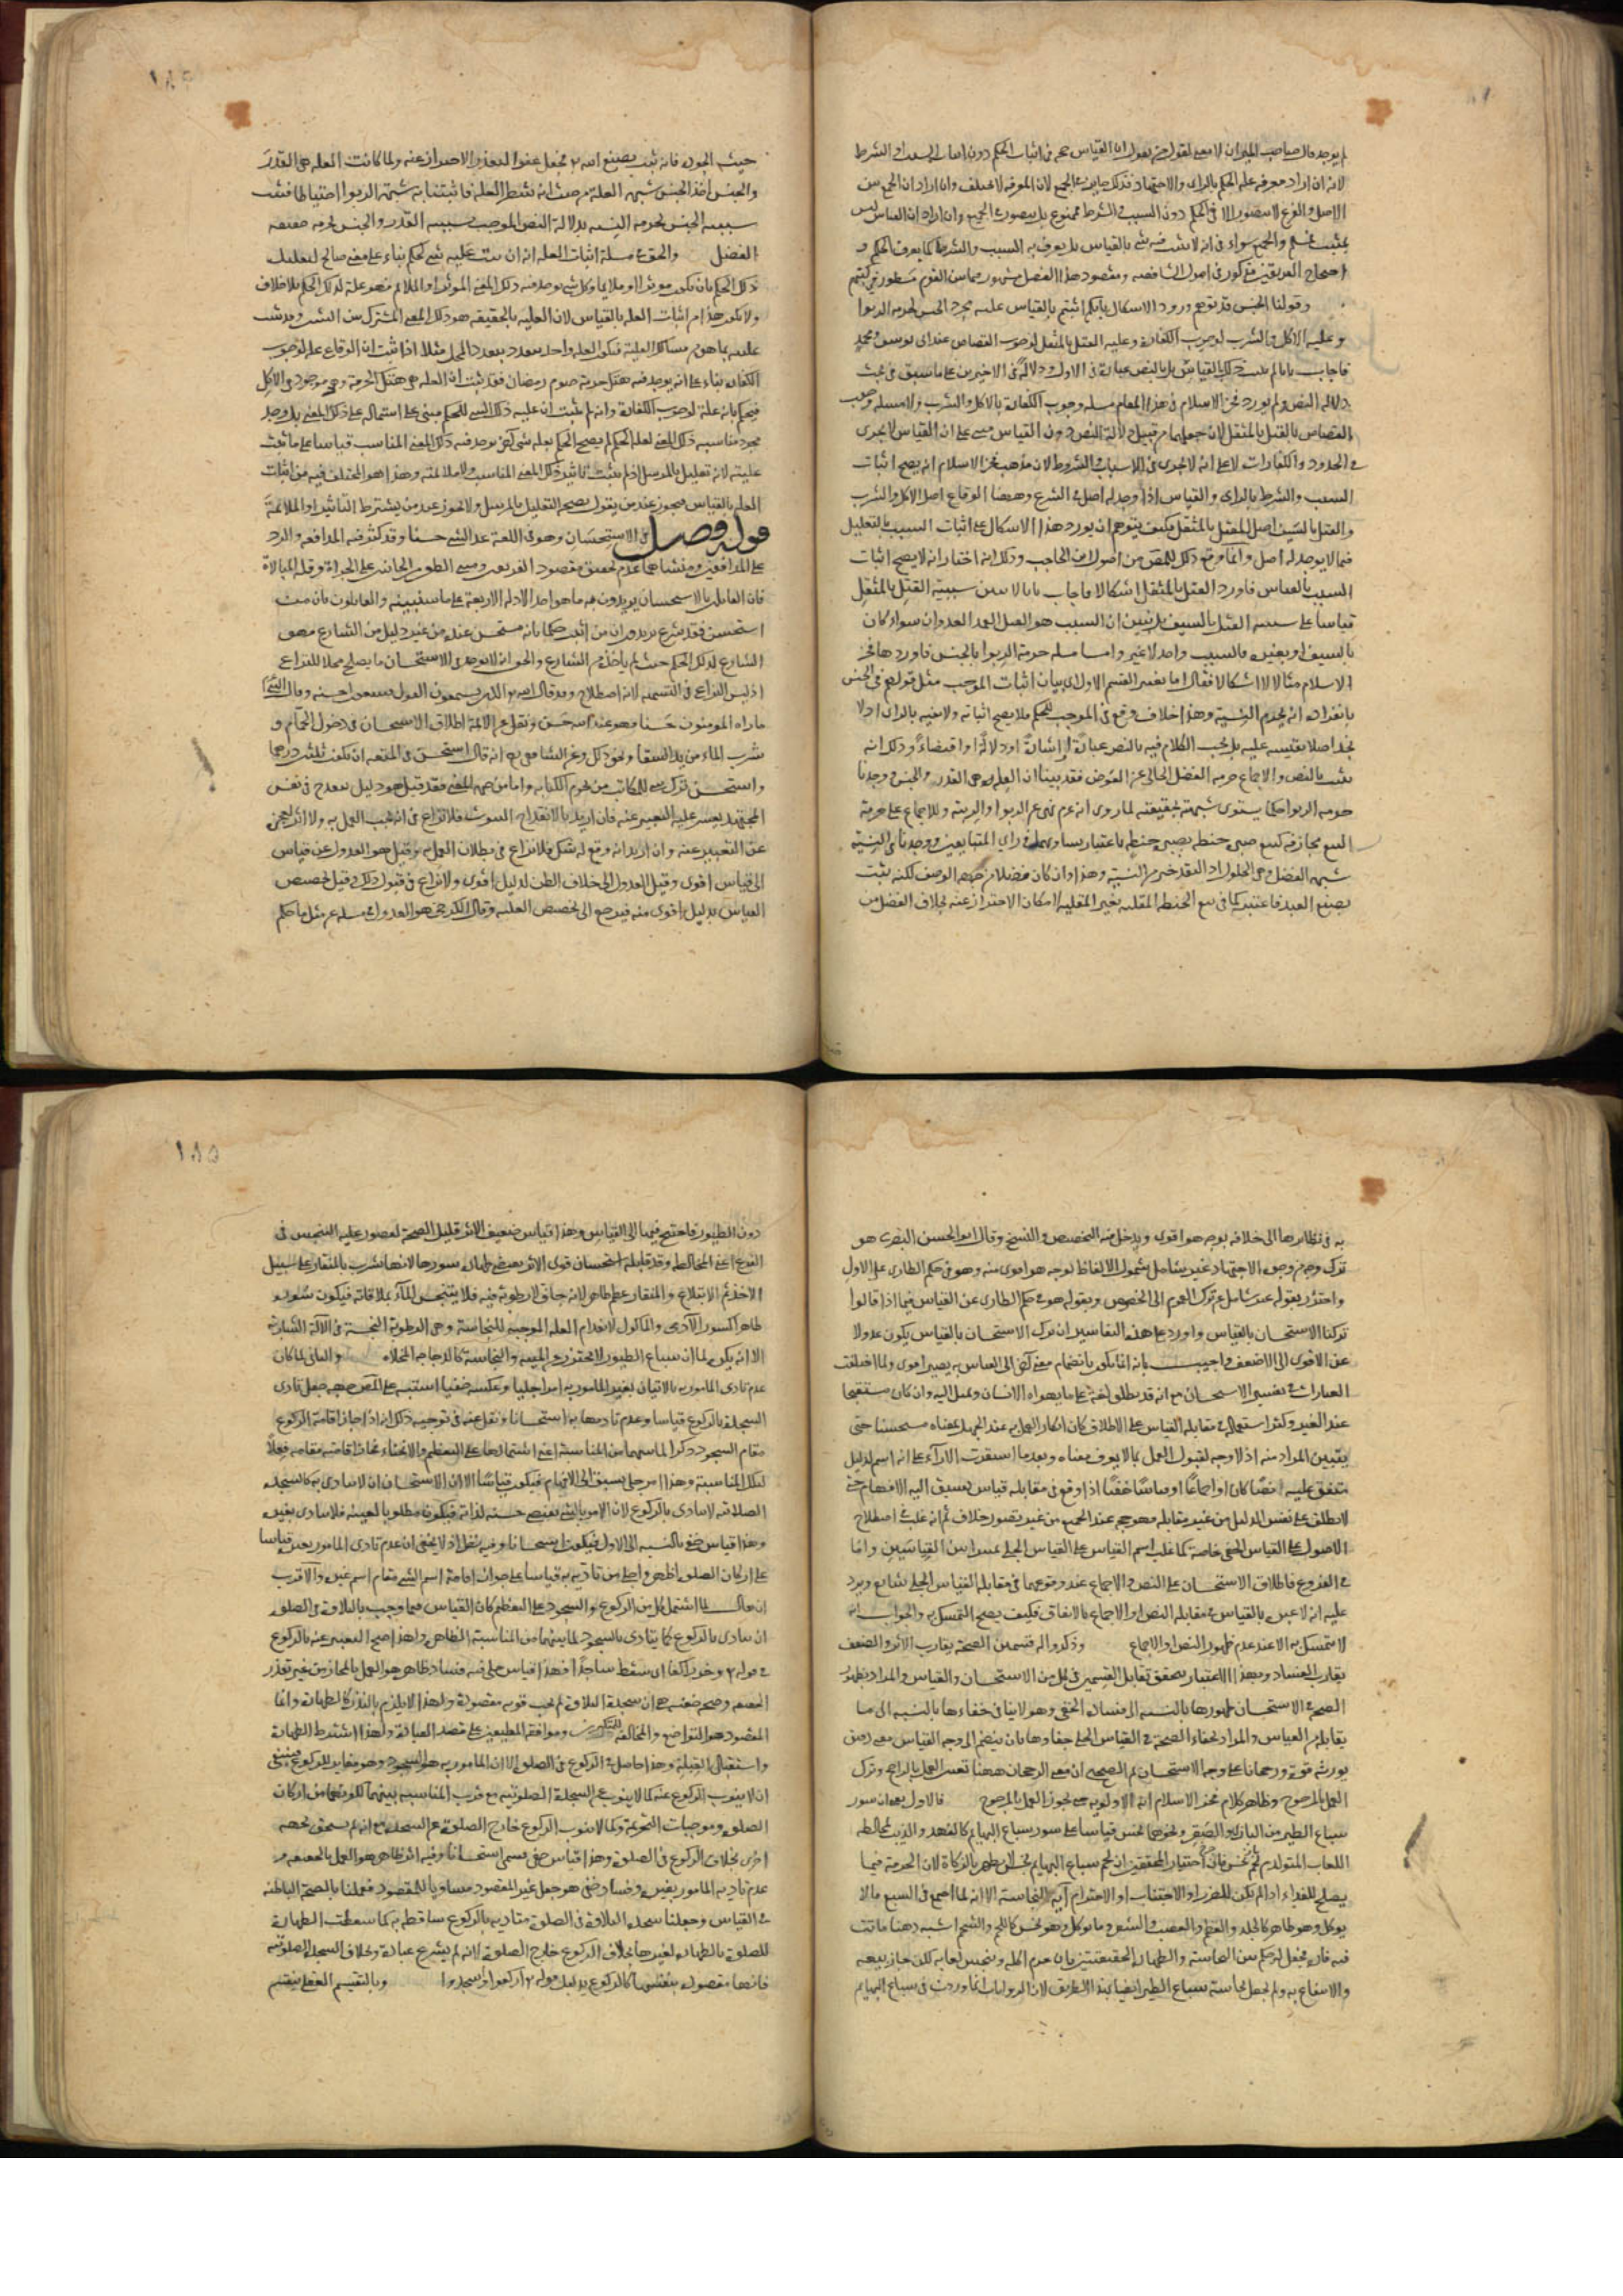 لم يوجد قال صاحب الميزان لا معنى لقول من يقول ان القياس حجة في اثبات الحكم دون اثبات السبب او الشرط
لانه ان اراد معرفة علة الحكم بالراى والاجتهاد فذلك جايز في الجميع لان المعرفة لا تختلف وان اراد ان الجمع بين
الاصل والفرع لا يتصور الا في الحكم دون السبب والشرط فممنوع بل يتصور في الجميع وان اراد ان القياس ليس
بمثبت فمسلم والجميع سواء في انه لا يثبت فيه شي بالقياس بل يعرف به السبب والشرط كما يعرف الحكم و
احتجاج الفريقين مذكور في اصول الشافعية ومقصود هذا الفصل مشهور فيما بين القوم مسطور في كتبهم
وقولنا الجنس قد توهم ورود الاشكال بانكم اثبتم بالقياس علية مجرد الجنس لحرمة الربوا
وعلية الاكل والشرب لوجوب الكفارة وعلية القتل بالمثقل لوجوب القصاص عند ابى يوسف ومحمد
فاجاب بانا لم نثبت ذلك بالقياس بل بالنص عبارة في الاول ودلالة في الاخيرين على ما سبق في بحث
دلالة النص ولم يورد فخر الاسلام في هذا المقام مسلة وجوب الكفارة بالاكل والشرب ولا مسلة وجوب
القصاص بالقتل بالمثقل لان جعلهما من قبيل دلالة النص دون القياس مبنى على ان القياس لا يجرى
في الحدود والكفارات لا على انه لا يجرى في الاسباب والشروط لان مذهب فخر الاسلام انه يصح اثبات
السبب والشرط بالراى والقياس اذا وجد له اصل في الشرع وههنا الوقاع اصل الاكل والشرب
والقتل بالسيف اصل للقتل بالمثقل فكيف يتوهم ان يورد هذا الاشكال على اثبات السبب بالتعليل
فيما لا يوجد له اصل وانما وقع ذلك للمص من اصول ابن الحاجب وذلك انه اختار انه لا يصح اثبات
السبب بالقياس فاورد القتل بالمثقل اشكالا فاجاب بانا لا نبين سببية القتل بالمثقل
قياسا على سببية القتل بالسيف بل نبين ان السبب هو القتل العمد العدوان سواء كان
بالسيف او بغيره فالسبب واحد لا غير واما مسلة حرمة الربوا بالجنس فاوردها فخر
الاسلام مثالا لا اشكالا فقال اما تفسير القسم الاول اى بيان اثبات الموجب فمثل قولهم في الجنس
بانفراده انه يحرم النسية وهذا خلاف وقع في الموجب للحكم فلا يصح اثباته ولا نفيه بالراى اذ لا
نجد اصلا نقيسه عليه بل يجب الكلام فيه بالنص عبارة او اشارة او دلالة او اقتضاء وذلك انه
ثبت بالنص والاجماع حرمة الفضل الخالى عن العوض فقد بينا ان العلة هى القدر والجنس ووجدنا
حرمة الربوا حكما يستوى شبهته بحقيقته لما روى انه عم نهى عن الربوا والريبة وللاجماع على حرمة
البيع مجازفة كبيع صبرة حنطة بصبرة حنطة باعتبار تساويهما في راى المتبايعين ووجدنا في النسية
شبهة الفضل وهى الحلول اذ النقد خير من النسية وهذا وان كان فضلا من جهة الوصف لكنه يثبت
بصنع العبد فاعتبر كما في بيع الحنطة المقلية بغير المقلية لامكان الاحتراز عنه بخلاف الفضل من
حيث الجودة فانه ثبت بصنع الله تع فجعل عفوا لتعذر الاحتراز عنه ولما كانت العلة هى القدر
والجنس اخذ الجنس شبهة العلة من حيث انه شطر العلة فاثبتنا به شبهة الربوا احتياطا فثبت
سببية الجنس لحرمة النسية بدلالة النص الموجب سببية القدر والجنس لحرمة حقيقة
الفضل والحق في مسلة اثبات العلة انه ان ثبت علية شي لحكم بناء على معنى صالح لتعليل
ذلك الحكم بان يكون موثرا او ملايما فكل شي يوجد فيه ذلك المعنى الموثر او الملايم فهو علة لذلك الحكم بلا خلاف
ولا يكون هذا من اثبات العلة بالقياس لان العلة بالحقيقة هو ذلك المعنى المشترك بين الشيئين وقد ثبت
عليته بما هو من مسالك العلية فتكون العلة واحدة تتعدد بتعدد المحل مثلا اذا ثبت ان الوقاع علة لوجوب
الكفارة بناء على انه يوجد فيه هتك حرمة صوم رمضان فقد ثبت ان العلة هى هتك الحرمة وهى موجودة في الاكل
فيحكم بانه علة لوجوب الكفارة وان لم يثبت ان علية ذلك الشي للحكم مبنى على اشتماله على ذلك المعنى بل وجد
مجرد مناسبة ذلك المعنى لعلية الحكم لم يصح الحكم بعلية شى اخر يوجد فيه ذلك المعنى المناسب قياسا على ما ثبت
عليته لانه تعليل بالمرسل اذ لم يثبت تاثير ذلك المعنى المناسب ولا ملايمته وهذا هو المختلف فيه من اثبات
العلة بالقياس فيجوز عند من يقول بصحة التعليل بالمرسل ولا يجوز عند من يشترط التاثير او الملايمة
قوله فصل في الاستحسان وهو في اللغة عد الشي حسنا وقد كثر فيه المدافعة والرد
على المدافعين ومنشاهما عدم تحقيق مقصود الفريقين ومبنى الطعن من الجانبين على الجراءة وقلة المبالاة
فان القايلين بالاستحسان يريدون به ما هو احد الادلة الاربعة على ما سنبينه والقايلون بان من
استحسن فقد شرع يريدون ان من اثبت حكما بانه مستحسن عنده من غير دليل من الشارع فهو
الشارع لذلك الحكم حيث لم ياخذه من الشارع والحق انه لا يوجد في الاستحسان ما يصلح محلا للنزاع
اذ ليس النزاع في التسمية لانه اصطلاح وقد قال الله تع الذين يستمعون القول فيتبعون احسنه وقال النبى
ما راه المومنون حسنا فهو عند الله حسن ونقل عن الائمة اطلاق الاستحسان في دخول الحمام و
شرب الماء من يد السقا ونحو ذلك وعن الشافعى انه قال استحسن في المتعة ان تكون ثلثين درهما
واستحسن ترك شي للمكاتب من نجوم الكتابة واما من جهة المعنى فقد قيل هو دليل ينقدح في نفس
المجتهد يعسر عليه التعبير عنه فان اريد بالانقداح الثبوت فلا نزاع في انه يجب العمل به ولا اثر لعجزه
عن التعبير عنه وان اريد انه وقع له شك فلا نزاع في بطلان العمل به وقيل هو العدول عن قياس
الى قياس اقوى وقيل العدول الى خلاف الظن لدليل اقوى ولا نزاع في قبول ذلك وقيل تخصيص
القياس بدليل اقوى منه فيرجع الى تخصيص العلة وقال الكرخى هو العدول في مسلة عن مثل ما حكم
به في نظائرها الى خلافه بوجه هو اقوى ويدخل فيه التخصيص والنسخ وقال ابو الحسن البصرى هو
ترك وجه من وجوه الاجتهاد غير شامل شمول الالفاظ لوجه هو اقوى منه وهو في حكم الطارى على الاول
واحترز بقوله غير شامل عن ترك العموم الى الخصوص وبقوله هو في حكم الطارى عن القياس فيما اذا قالوا
تركنا الاستحسان بالقياس واورد على هذه التفاسير ان ترك الاستحسان بالقياس يكون عدولا
عن الاقوى الى الاضعف واجيب بانه انما يكون بانضمام معنى اخر الى القياس به يصير اقوى ولما اختلفت
العبارات في تفسير الاستحسان مع انه قد يطلق لغة على ما يهواه الانسان ويميل اليه وان كان مستقبحا
عند الغير وكثر استعماله في مقابلة القياس على الاطلاق كان انكار العمل به عند الجهل بمعناه مستحسنا حتى
يتبين المراد منه اذ لا وجه لقبول العمل بما لا يعرف معناه وبعد ما استقرت الاراء على انه اسم لدليل
متفق عليه نصا كان او اجماعا او قياسا خفيا اذا وقع في مقابلة قياس يسبق اليه الافهام حتى
لا يطلق على نفس الدليل من غير مقابلة فهو حجة عند الجميع من غير تصور خلاف ثم انه غلب في اصطلاح
الاصول على القياس الخفى خاصة كما غلب اسم القياس على القياس الجلى تمييزا بين القياسين واما
في الفروع فاطلاق الاستحسان على النص والاجماع عند وقوعهما في مقابلة القياس الجلى شايع ويرد
عليه انه لا عبرة بالقياس في مقابلة النص او الاجماع بالاتفاق فكيف يصح التمسك به والجواب انه
لا يتمسك به الا عند عدم ظهور النص او الاجماع وذكروا له قسمين الصحة يقارب الاثر والضعف
يقارب الفساد وبهذا الاعتبار يتحقق تقابل القسمين في كل من الاستحسان والقياس والمراد بظهور
الصحة في الاستحسان ظهورها بالنسبة الى فساده الخفى وهو لا ينافى خفاءها بالنسبة الى ما
يقابله من القياس والمراد بخفاء الصحة في القياس الجلى خفاؤها بان ينضم الى وجه القياس معنى دقيق
يورثه قوة ورجحانا على وجه الاستحسان ثم الصحيح ان معنى الرجحان ههنا تعين العمل بالراجح وترك
العمل بالمرجوح وظاهر كلام فخر الاسلام انه الاولوية حتى يجوز العمل بالمرجوح قالاول يعنى ان سور
سباع الطير من البازى والصقر ونحوهما نجس قياسا على سور سباع البهايم كالفهد والذيب لمخالطة
اللعاب المتولد من لحم نجس فان اختيار المحققين ان لحم سباع البهايم نجس لا يطهر بالزكاة لان الحرمة فيما
يصلح للغذاء اذا لم يكن للضرر او الاجتناب او الاحترام آية النجاسة الا انه لما اجتمع في السبع ما لا
يوكل وهو طاهر كالجلد والعظم والعصب والشعر وما يوكل وهو نجس كاللحم والشحم اشبه دهنا ماتت
فيه فارة فجعل له حكم بين النجاسة والطهارة الحقيقتين بان حرم اكله ونجس لعابه لكن جاز بيعه
والانتفاع به ولم يجعل نجاسة سباع الطير ايضا بهذا الطريق لان الروايات انما وردت في سباع البهايم
دون الطيور فاحتيج فيها الى القياس وهذا قياس ضعيف الاثر قليل الصحة لقصور علية التنجس في
الفرع اعنى المخالطة وقد قابله استحسان قوى الاثر يقتضى طهارة سورها لانها تشرب بالمنقار على سبيل
الاخذ ثم الابتلاع والمنقار عظم طاهر لانه جاف لا رطوبة فيه فلا يتنجس الماء بملاقاته فيكون سوره
طاهرا كسور الآدمى والماكول لانعدام العلة الموجبة للنجاسة وهى الرطوبة النجسة في الآلة الشاربة
الا انه يكره لما ان سباع الطيور لا تحترز عن الميتة والنجاسة كالدجاجة المخلاة والثانى لما كان
عدم تادى المامور به بالاتيان بغير المامور به امرا جليا وعكسه خفيا اشتبه على المص جهة جعل تادى
السجدة بالركوع قياسا وعدم تاديها به استحسانا ونقل عنه في توجيه ذلك انه اذا جاز اقامة الركوع
مقام السجود ذكرا لما بينهما من المناسبة اعنى اشتمالهما على التعظيم والانحناء فجاز اقامته مقامه فعلا
لتلك المناسبة وهذا امر جلى يسبق الى الافهام فيكون قياسا الا ان الاستحسان ان لا يتادى به كالسجدة
الصلاتية لا يتادى بالركوع لان الامر بالشي يقتضى حسنه لذاته فيكون مطلوبا لعينه فلا يتادى بغيره
وهذا قياس خفى بالنسبة الى الاول فيكون استحسانا وفيه نظر اذ لا يخفى ان عدم تادى المامور بغيره قياسا
على اركان الصلوة اظهر واجلى من تاديه به قياسا على جواز اقامة اسم الشي مقام اسم غيره والاقرب
ان يقال لما اشتمل كل من الركوع والسجود على التعظيم كان القياس فيما وجب بالتلاوة في الصلوة
ان يتادى بالركوع كما يتادى بالسجود لما بينهما من المناسبة الظاهرة ولهذا صح التعبير عنه بالركوع
في قوله تع وخر راكعا اى سقط ساجدا فهذا قياس جلى فيه فساد ظاهر هو العمل بالمجاز من غير تعذر
الحقيقة وصحة خفية هى ان سجدة التلاوة لم تجب قربة مقصودة ولهذا لا يلزم بالنذر كالطهارة وانما
المقصود هو التواضع والمخالفة للمتكبرين وموافقة المطيعين على قصد العبادة ولهذا اشترط الطهارة
واستقبال القبلة وهذا حاصل في الركوع في الصلوة الا ان المامور به هو السجود وهو مغاير للركوع فينبغى
ان لا ينوب الركوع عنه كما لا ينوب عن السجدة الصلوتية مع قرب المناسبة بينهما لكونهما من اركان
الصلوة وموجبات التحريمة وكما لا ينوب الركوع خارج الصلوة عن السجدة مع انه لم يستحق بجهة
اخرى بخلاف الركوع في الصلوة وهذا قياس خفى يسمى استحسانا وفيه اثر ظاهر هو العمل بالحقيقة و
عدم تادية المامور بغيره وفساد خفى هو جعل غير المقصود مساويا للمقصود فعملنا بالصحة الباطنة
في القياس وجعلنا سجدة التلاوة في الصلوة متادية بالركوع ساقطة به كما سقطت الطهارة
للصلوة بالطهارة لغيرها بخلاف الركوع خارج الصلوة لانه لم يشرع عبادة وبخلاف السجدة الصلوتية
فانها مقصودة بنفسها كالركوع بدليل قوله تع اركعوا واسجدوا وبالتقسيم العقلى ينقسم
١٨٤
١٨٥